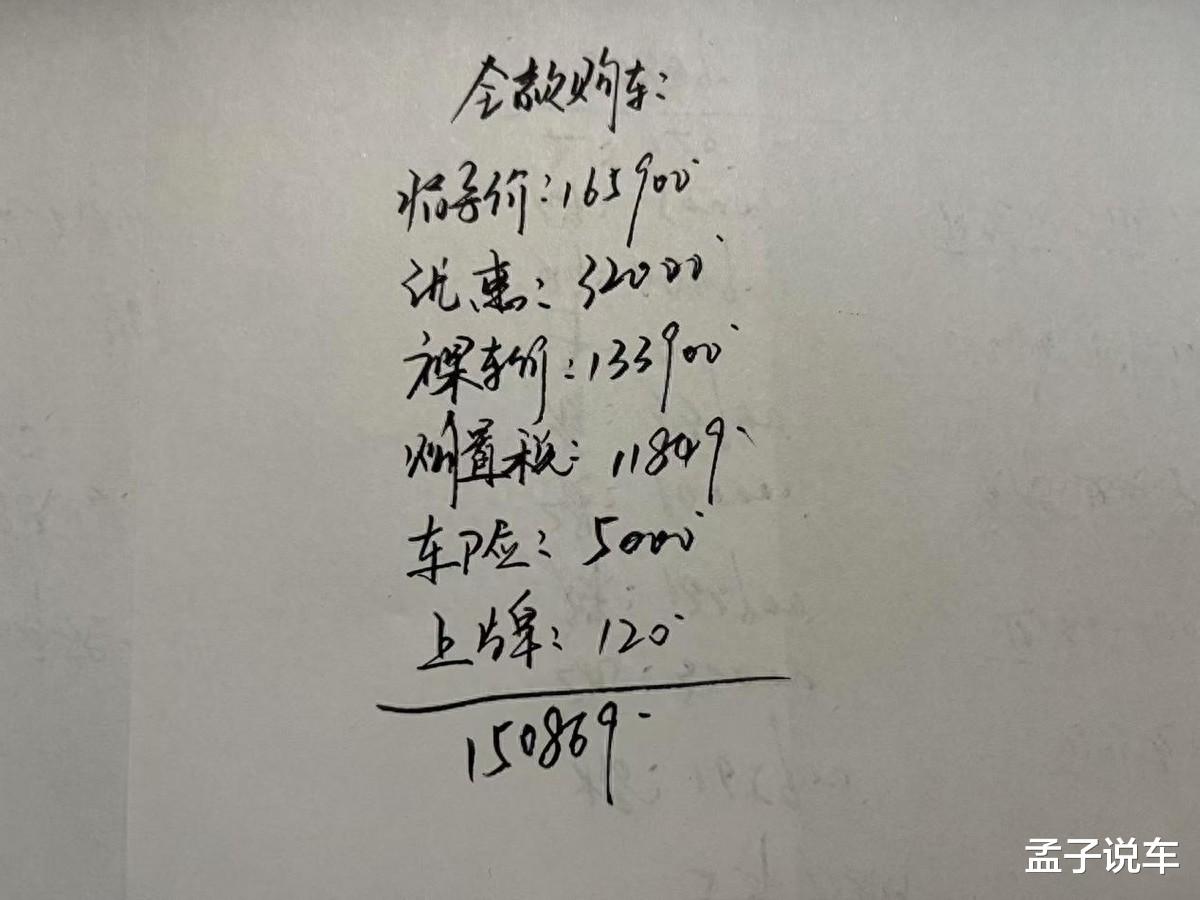 全款购车:
指导价:165900
优惠:32000
裸车价:133900
购置税:11849
车险:5000
上牌:120
150869
孟子说车